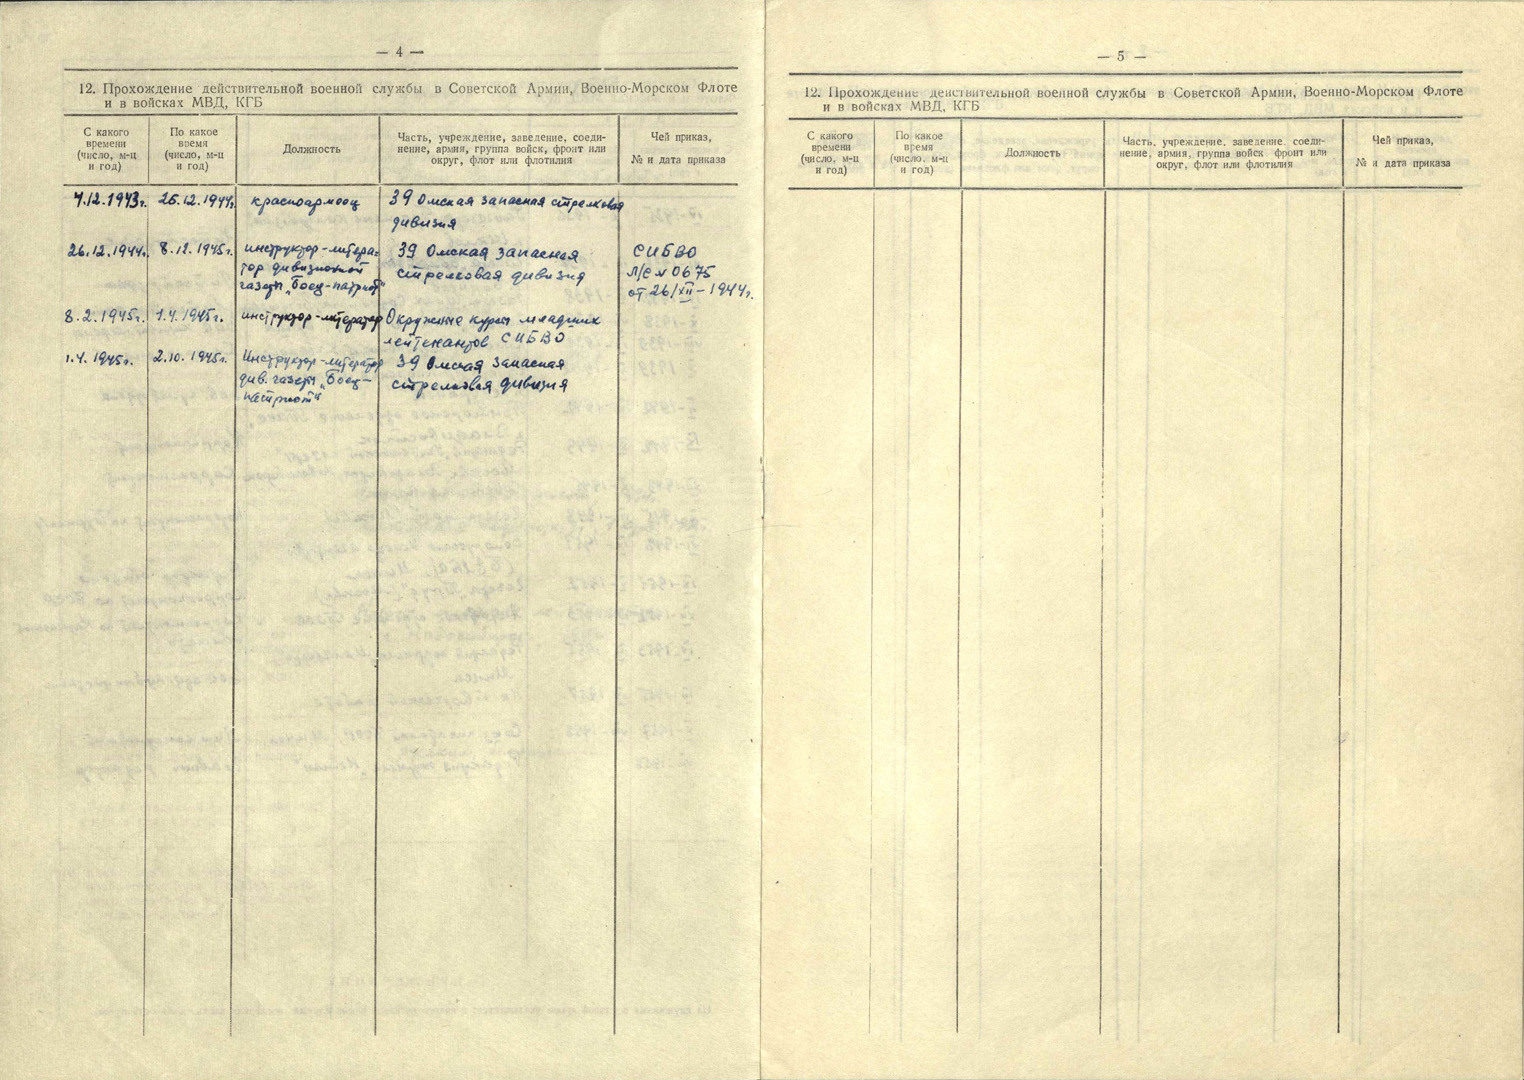 — 4 —
12. Прохождение действительной военной службы в Советской Армии, Военно-Морском Флоте
и в войсках МВД, КГБ
С какого
времени
(число, м-ц
и год)
По какое
время
(число, м-ц
и год)
Должность
Часть, учреждение, заведение, соеди-
нение, армия, группа войск, фронт или
округ, флот или флотилия
Чей приказ,
№ и дата приказа
7.12.1943г.
25.12.1944г.
красноармеец
39 Омская запасная стрелковая
дивизия
26.12.1944г.
8.12.1945г.
инструктор-литера-
тор дивизионной
газеты „Боец-патриот"
39 Омская запасная
стрелковая дивизия
СИБВО
Л/С № 0675
от 26/XII – 1944г.
8.2.1945г.
1.4.1945г.
инструктор-литератор
Окружные курсы младших
лейтенантов СИБВО
1.4.1945г.
2.10.1945г.
Инструктор-литератор
див. газеты „Боец-
патриот"
39 Омская запасная
стрелковая дивизия
— 5 —
12. Прохождение действительной военной службы в Советской Армии, Военно-Морском Флоте
и в войсках МВД, КГБ
С какого
времени
(число, м-ц
и год)
По какое
время
(число, м-ц
и год)
Должность
Часть, учреждение, заведение, соеди-
нение, армия, группа войск фронт или
округ, флот или флотилия
Чей приказ,
№ и дата приказа